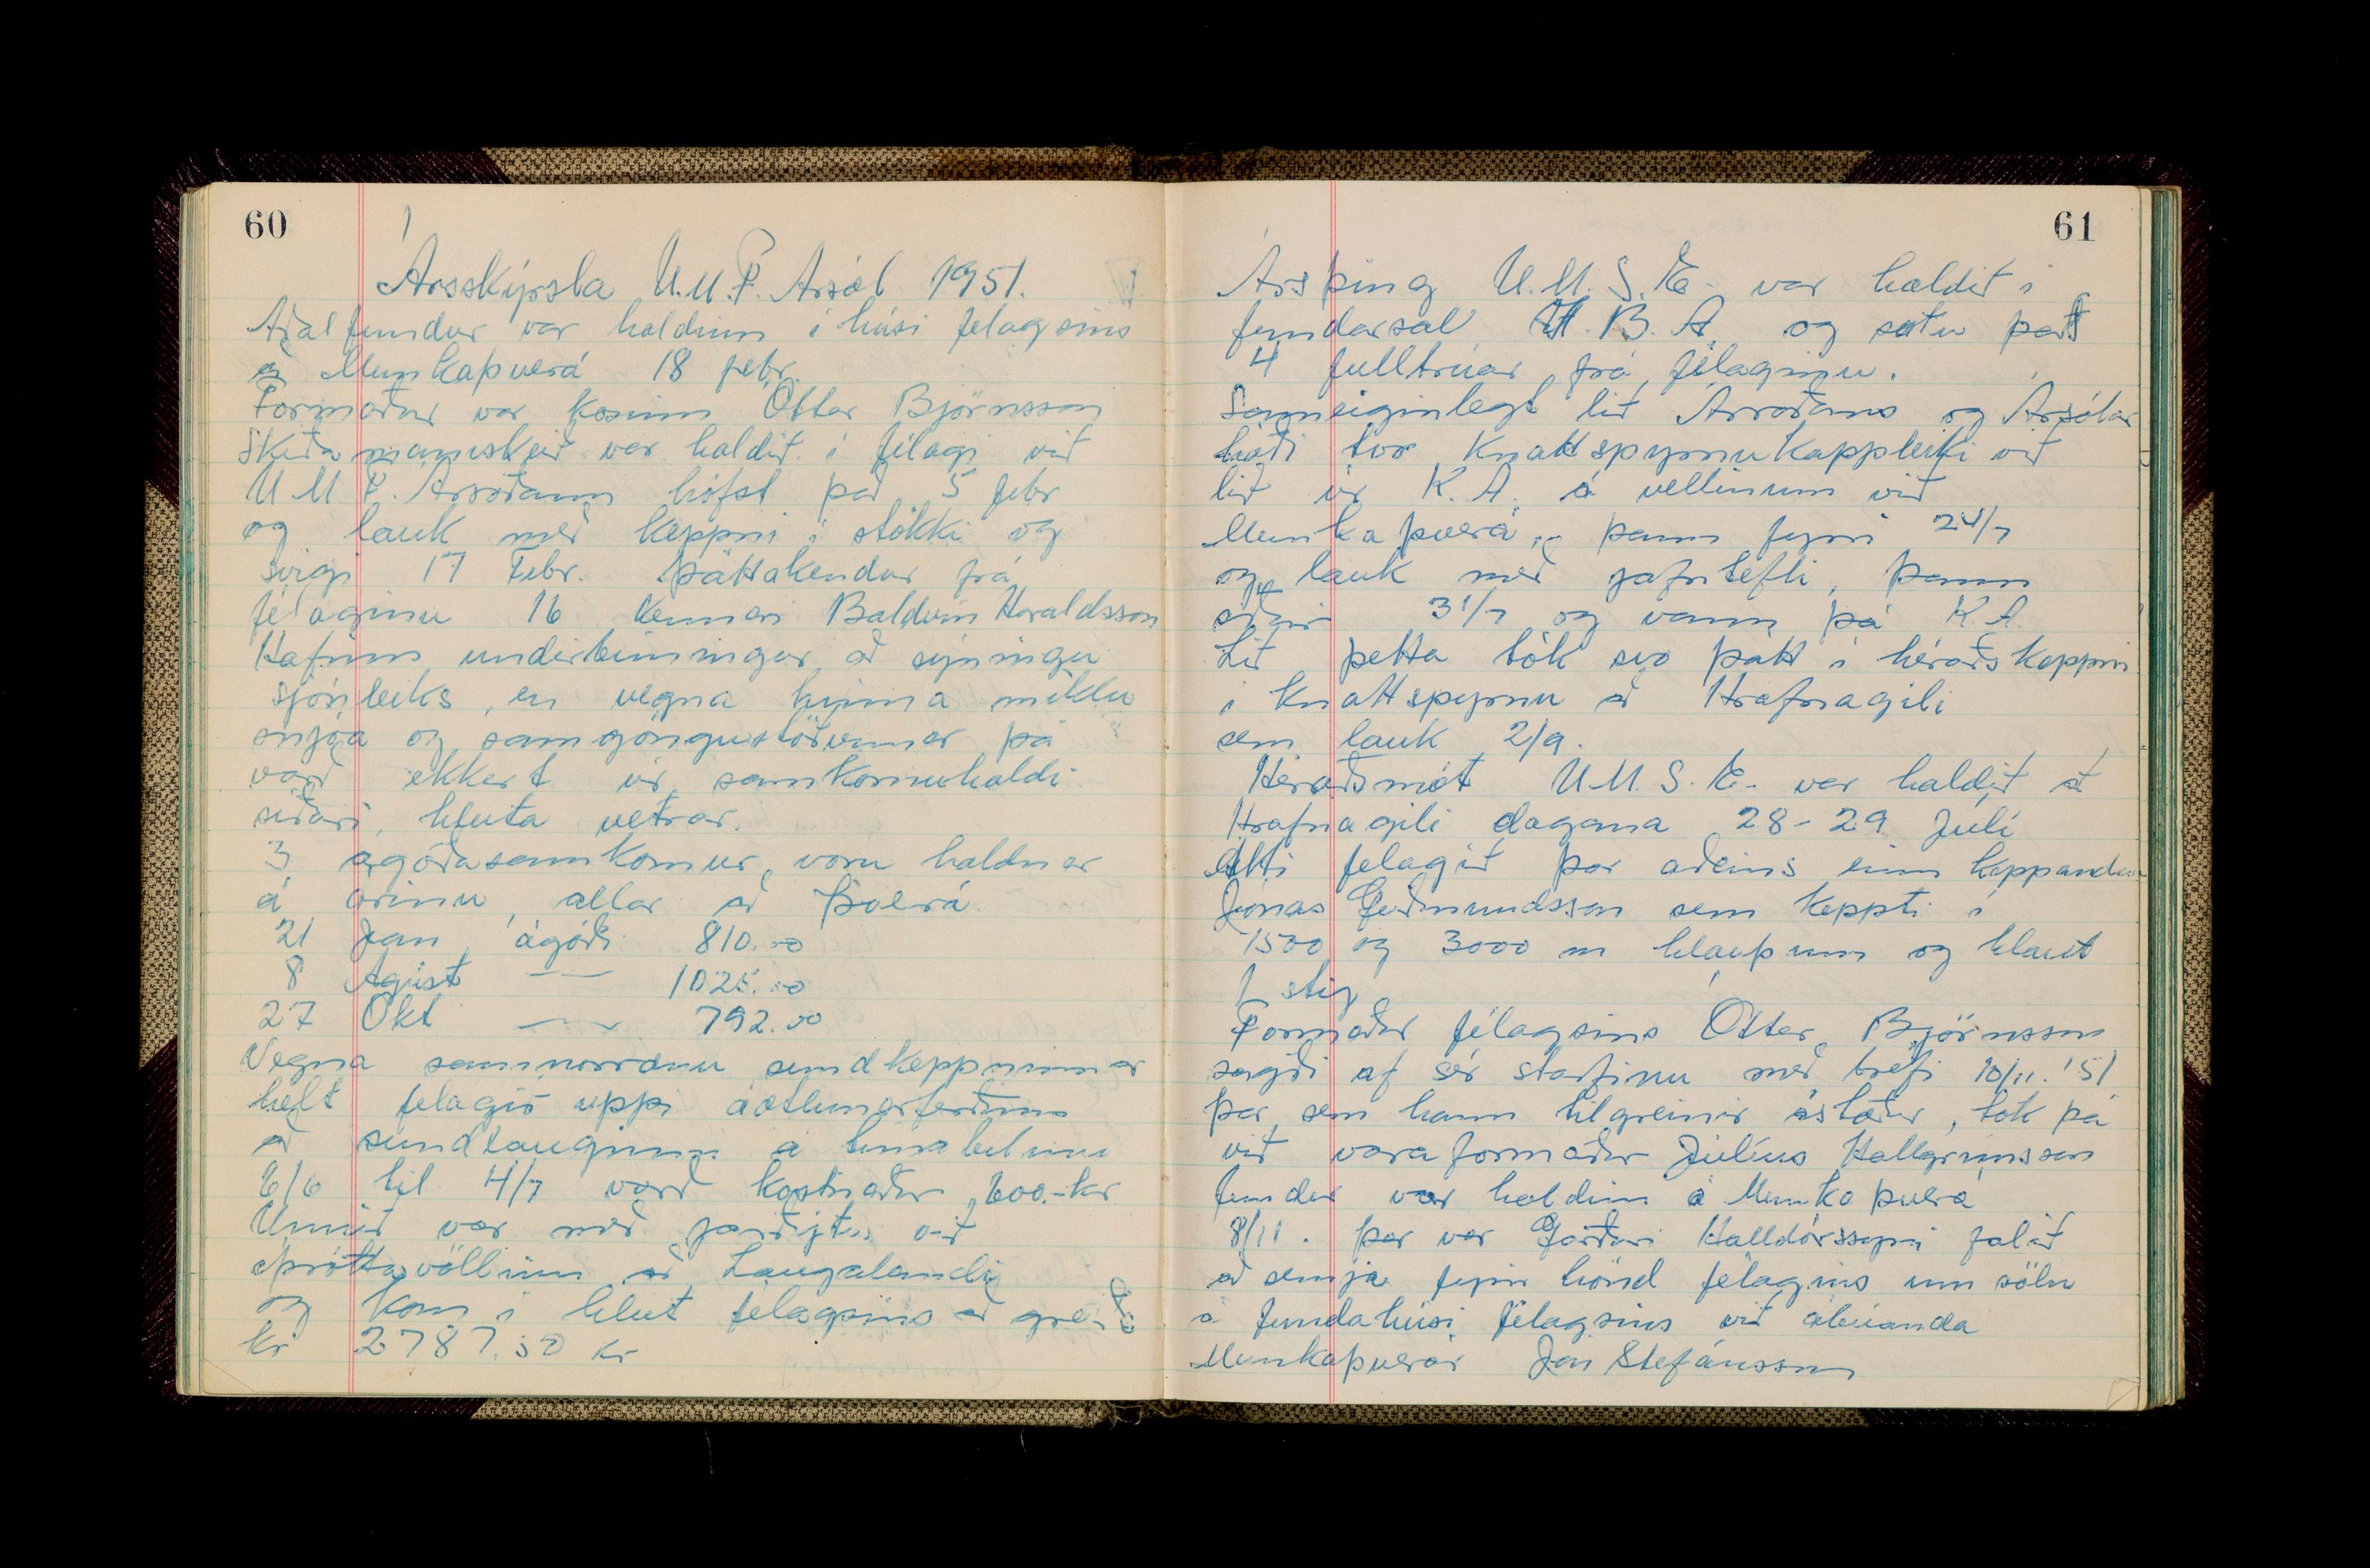 60
Ársskýrsla U.M.F. Ársól 1951.
Aðalfundur var haldinn í húsi félagsins
á Munkaþverá 18 febr.
Formaður var kosinn Óttar Björnsson
Skíðamannskeið var haldið í félagi við
U M F. Ársoðann hófst það 5 febr
og lauk með keppni í stökki og
svigi 17 Febr. þátttakendur frá
félaginu 16 kennari Baldvin Haraldsson
Hafinn undirbúningur að sýningu
sjónleiks, en vegna hinna miklu
snjóa og samgönguörðunnar þá
varð ekkert úr samkomuhaldi
síðari hluta vetrar.
3 ágóðasamkomur voru haldnar
á árinu, allar að Þverá
21 Jan ágóði 810.00
8 Agúst — 1025.00
27 Okt — 792.00
Vegna samnorrænu sundkeppninnar
helt félagið uppi áætlunarferðum
að sundlauginni á tímabilinu
6/6 til 4/7 varð kostnaður 600.- kr
Unnið var með jarðýtu við
íþróttavöllinn að Laugalandi
og kom í hlut félagsins að greiða
kr 2787.50 kr
61
Ársþing U.M.S.E. var haldið í
fundarsal Í.B.A og sátu það
4 fulltrúar frá félaginu.
Sameiginlegt lið Ársoðans og Ársólar
háði tvo knattspyrnukappleiki við
lið úr K.A. á vellinum við
Munkaþverá, þann fyrri 24/7
og lauk með jafntefli, þann
síðari 31/7 og vann þá K.A.
Lið þetta tók svo þátt í héraðskeppni
í knattspyrnu að Hrafnagili
sem lauk 2/9.
Héraðsmót U.M.S.E. var haldið at
Hrafnagili dagana 28-29 Julí
átti félagið þar aðeins einn keppanda
Jónas Guðmundsson sem keppti í
1500 og 3000 m hlaupum og hlaut
1 stig
Formaður félagsins Óttar Björnsson
sagði af sér starfinu með bréfi 10/11. '51
þar sem hann tilgreinir ástæður, tók þá
við varaformaður Júlíus Hallgrímsson
fundur var haldinn á Munkaþverá
8/11. þar var Garðari Halldórssyni falið
að semja fyrir hönd félagins um sölu
á fundahúsi félagsins við ábúanda
Munkaþverár Jón Stefánsson